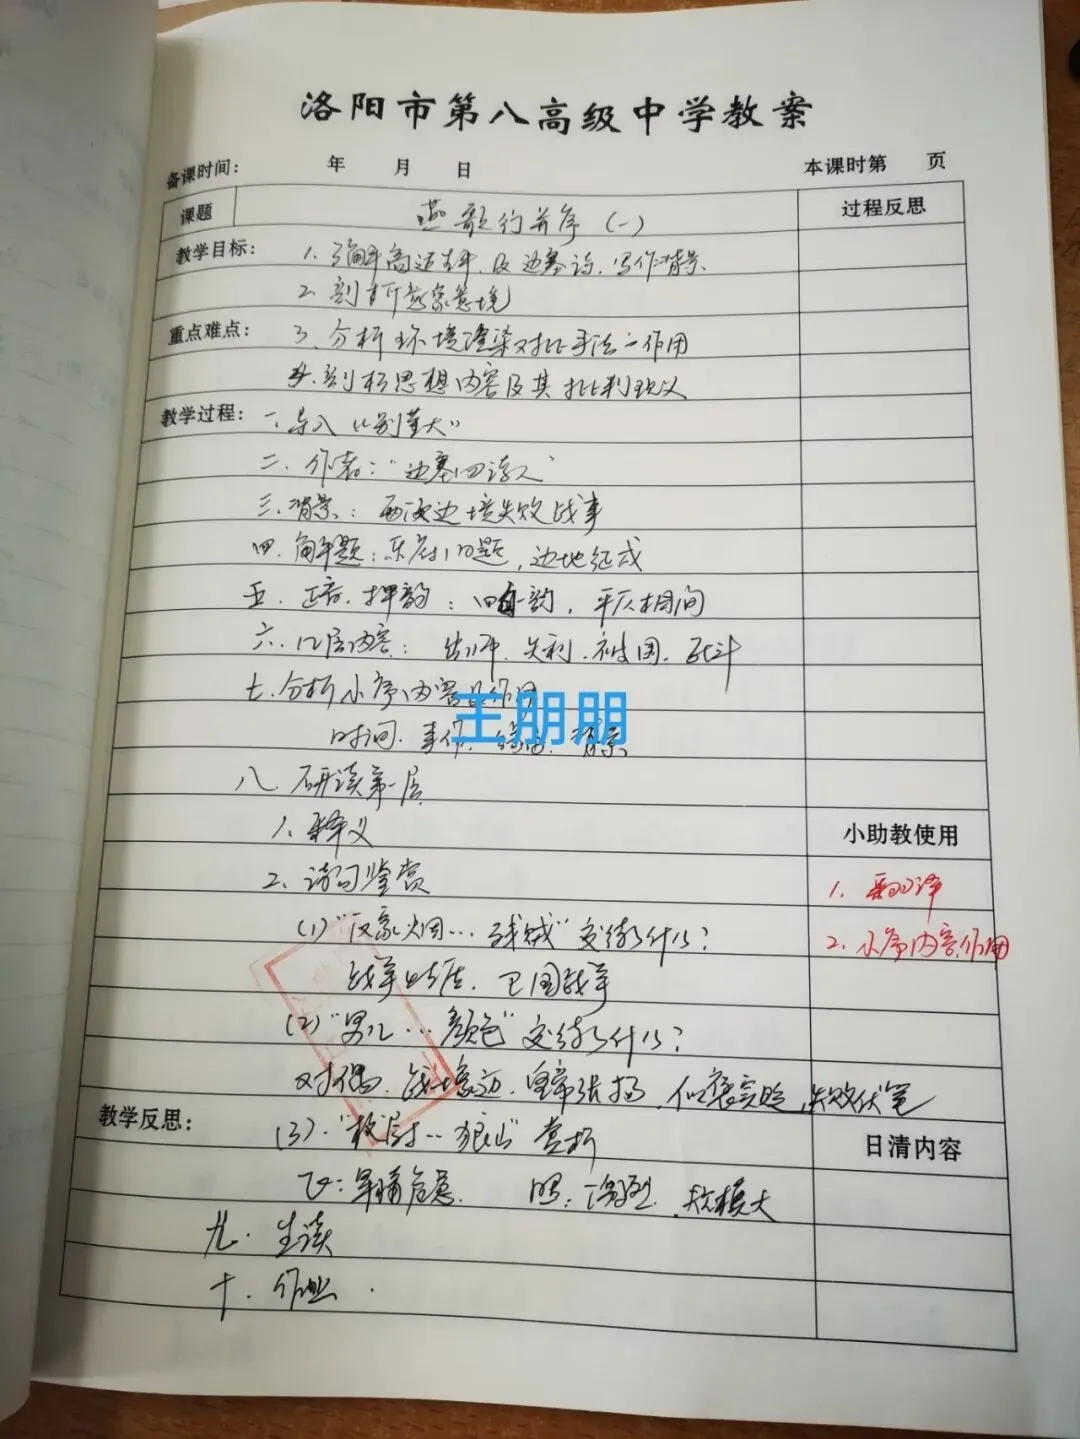 洛阳市第八高级中学教案
备课时间： 年 月 日 本课时第 页
课题 燕歌行并序（一） 过程反思
教学目标： 1. 了解高适生平、及边塞诗、写作背景
2. 剖析意象意境
重点难点： 3. 分析环境渲染对比手法的作用
4. 剖析思想内容及其批判现义
教学过程： 一、导入《别董大》
二、作者："边塞四诗人"
三、背景：两次边境失败战事
四、解题：乐府旧题，边地征戍
五、正音、押韵：四句一韵，平仄相间
六、四层内容：出师、失利、被围、死斗
七、分析小序内容及作用
时间、事件、缘由、背景
王朋朋
八、研读第一层
小助教使用
1. 释义
2. 诗句鉴赏
1. 翻译
(1) "汉家烟…残贼"交待了什么？
2. 小序内容作用
战争时居、卫国战争
(2) "男儿…颜色"交待了什么？
对偶、战场边、皇帝张扬、似褒实贬、失败伏笔
教学反思： (3)."校尉…狼山"赏析
日清内容
飞：军情危急 照：激烈、规模大
九、生读
十、作业